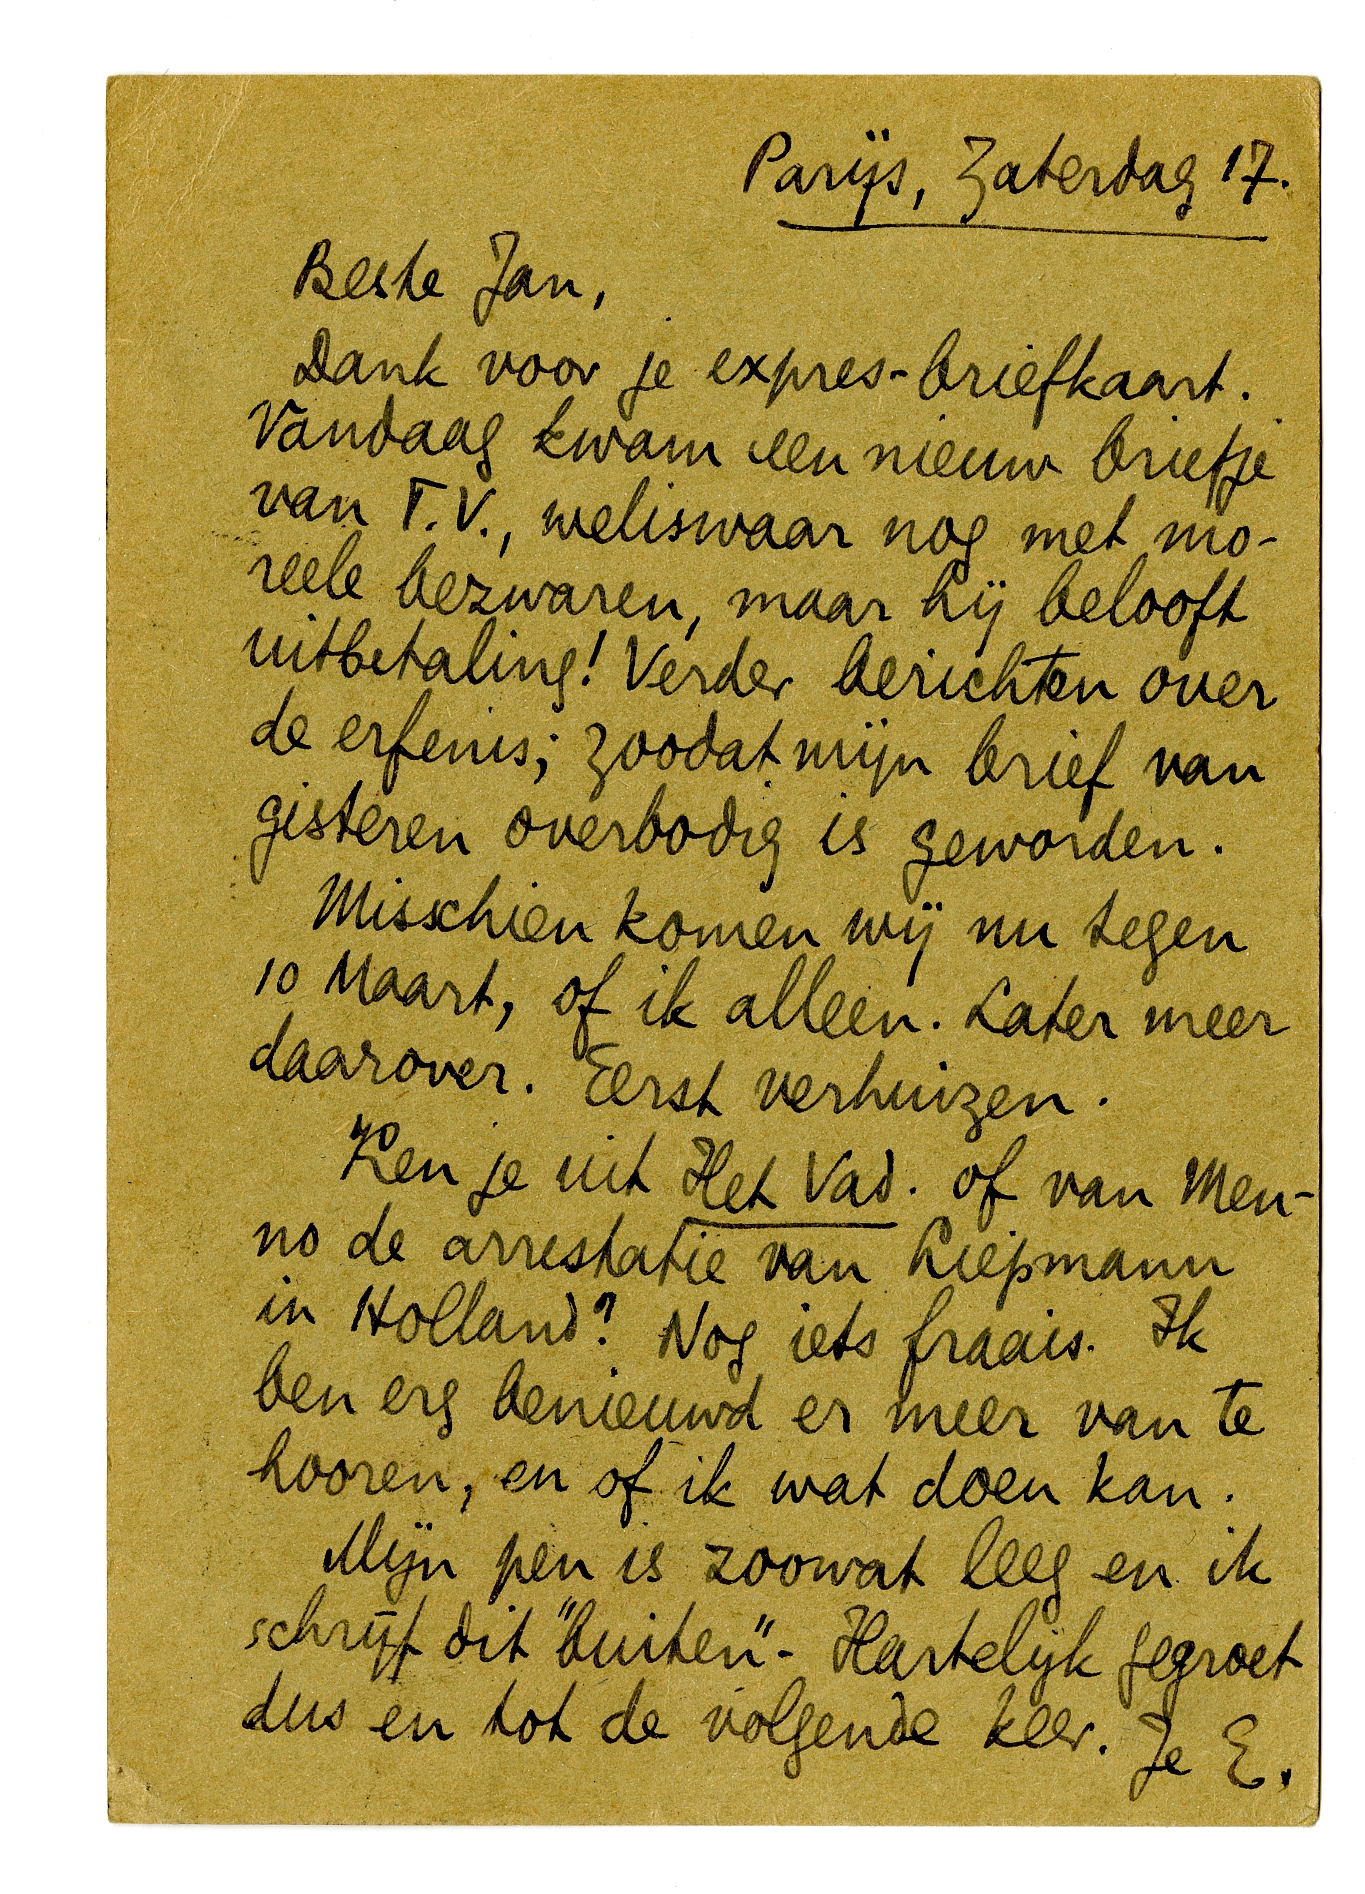 Parijs, Zaterdag 17.
Beste Jan,
Dank voor je expres-briefkaart.
Vandaag kwam een nieuw briefje
van T.V., weliswaar nog met mo-
reele bezwaren, maar hij belooft
uitbetaling! Verder berichten over
de erfenis; zoodat mijn brief van
gisteren overbodig is geworden.
Misschien komen wij nu tegen
10 Maart, of ik alleen. Later meer
daarover. Eerst verhuizen.
Ken je uit Het Vad. of van Men-
no de arrestatie van Liepmann
in Holland? Nog iets fraais. Ik
ben erg benieuwd er meer van te
hooren, en of ik wat doen kan.
Mijn pen is zoowat leeg en ik
schrijf dit "buiten"- Hartelijk gegroet
dus en tot de volgende keer. Je E.